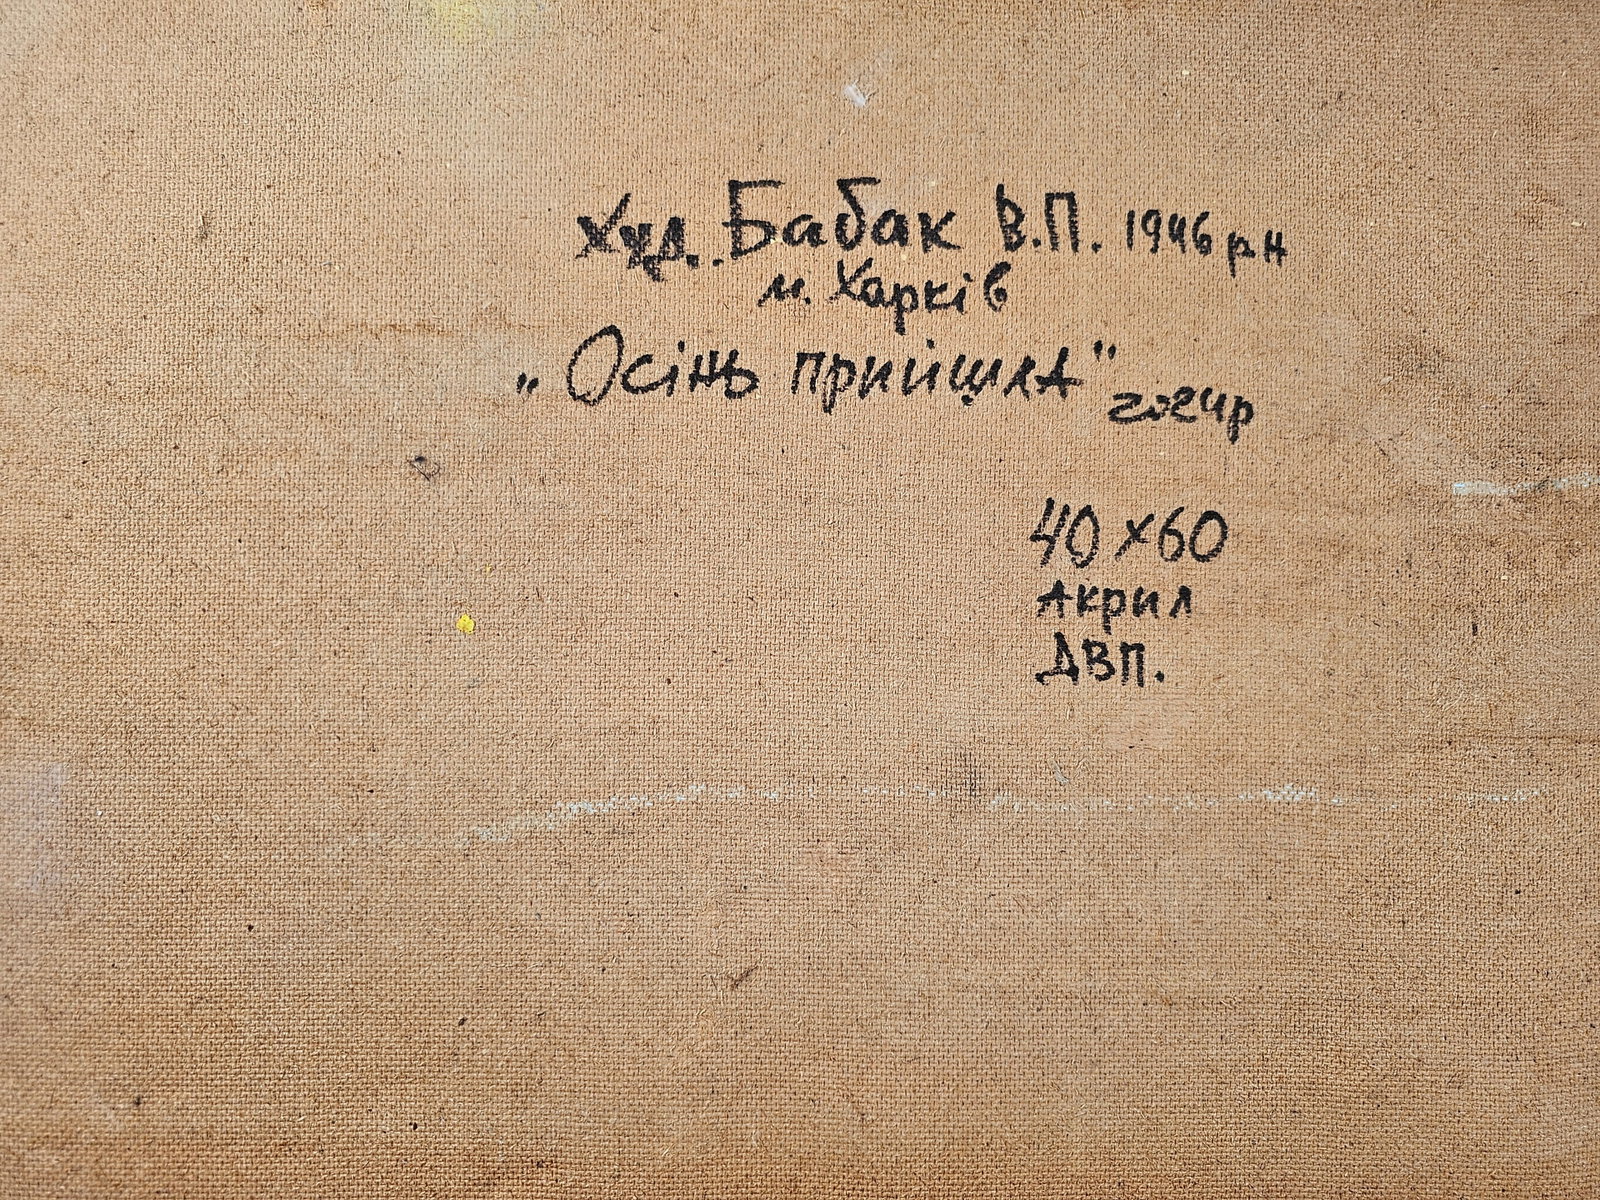 Худ. Бабак В.П. 1946 рн
м. Харків
„Осінь прийшла" 2024р
40х60
Акрил
ДВП.